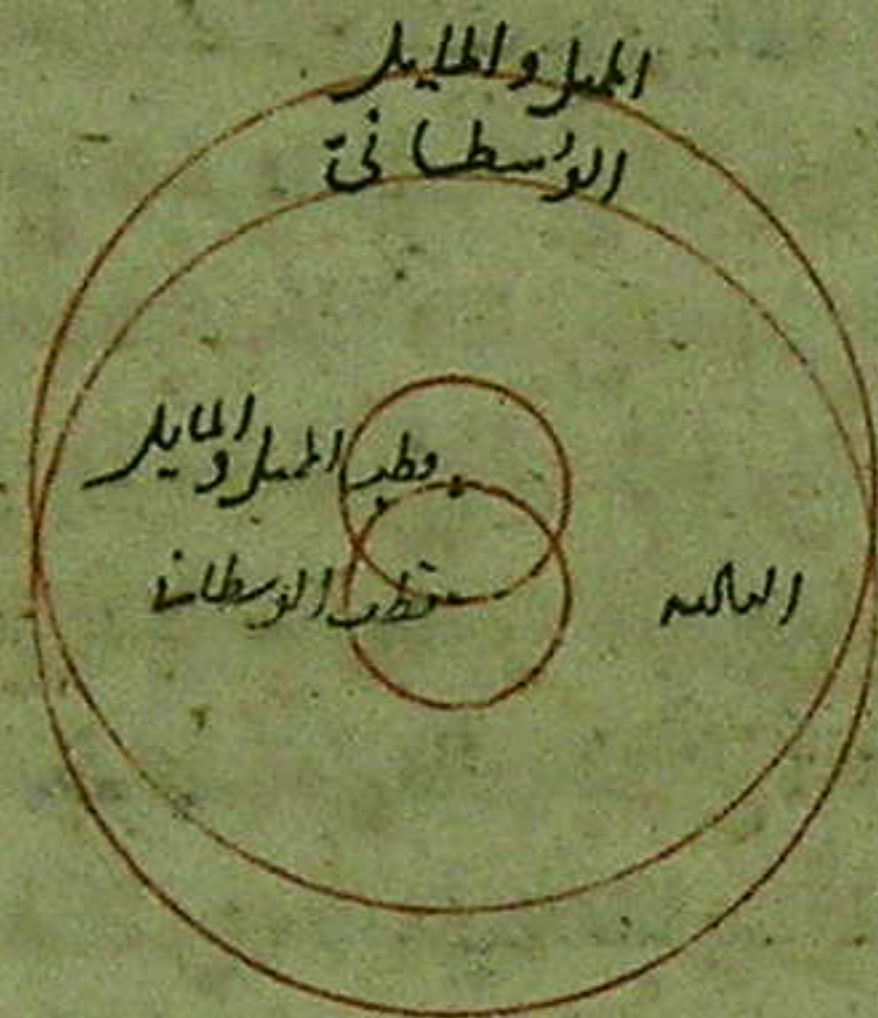 الميل والمايل
الوُسطانى
قطب الميل والمايل
قطب الوسطانى
الثالثه